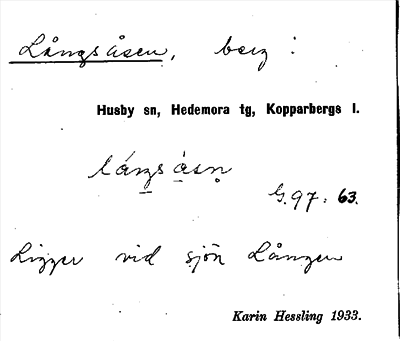 Långsåsen, berg :
Husby sn, Hedemora tg, Kopparbergs l.
lángsåsn̥
G. 97 : 63.
Ligger vid sjön Lången
Karin Hessling 1933.